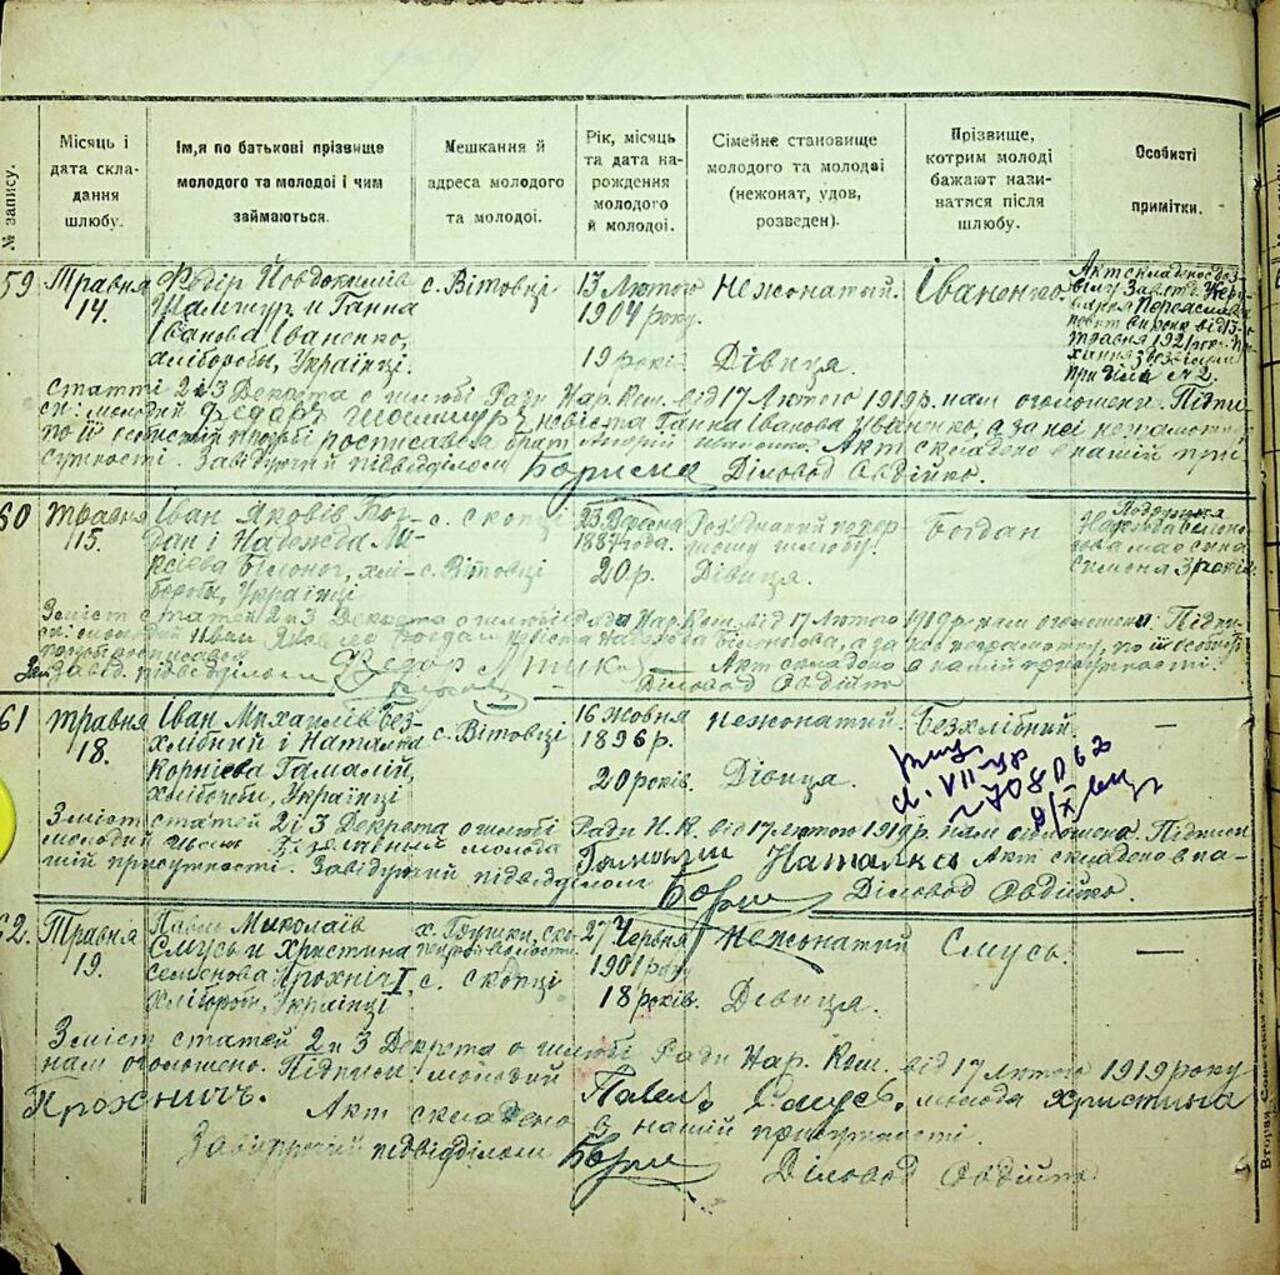 № запису.
Місяць і дата скла-дання шлюбу.
Ім,я по батькові прізвище молодого та молодоі і чим займаються.
Мешкання й адреса молодого та молодоі.
Рік, місяць та дата на-рождення молодого й молодоі.
Сімейне становище молодого та молодві (нежонат, удов, розведен).
Прізвище, котрим молоді бажают нази-ватися після шлюбу.
Особисті примітки.
59 Травня 14.
Федір Йовдокимів
Шалишур и Ганна
Іванова Іваненко,
хлібороби, Українці.
с. Вітовці
13 Лютого
1904 року.
19 років
Нежонатий.
Дівиця.
Іваненко.
Травня 1921 року
при ділі № 2.
статті 2 і 3 Декрета о шлюбі Ради Нар. Ком. від 17 Лютого 1919 р. нам оголошени. Підпи-
си: молодий Федоръ Шалишуръ невіста Ганна Іванова Іваненко, а за неі неграмотну
по її особистій прозьбі росписався брат Андрій Иваненко. Акт складено в нашій при-
сутності. Завідуючий підвідділом Борисм Діловод Овдійко.
60 Травня 15.
Іван Яковів Бог-
дан і Надежда Ли-
ксієва Білоног, хлі-
бороби, Українці
с. Скопці
с. Вітовці
23 Вересня
1887 года.
20 р.
Дівиця.
Богдан
має сина
Симона 3 років.
Зміст статей 2 и 3 Декрета о шлюбі Ради Нар. Ком. від 17 Лютого 1919 р. нам оголошени: Підпи-
си: молодий Иван Яковлев Богдан невіста Надежда а за нею неграмотну, по її особистій
прозьбі росписався Федор Акт складено в нашій присутності.
Зам. завід. підвідділом Діловод Овдійко
61 Травня 18.
Іван Михаилів Без-
хлібний і Наталка
Корнієва Гамалій,
хлібороби, Українці
с. Вітовці
16 жовня
1896 р.
20 років.
Нежонатий.
Дівица.
Безхлібний.
—
ст. VII-ур
708062
Зміст статей 2 і 3 Декрета о шлюбі Ради Н. К. від 17 Лютого 1919 р. нам оголошена. Підписи
молодий Иван Безхлебный молода Гамалии Наталка Акт складено в на-
шій присутності. Завідуючий підвідділом Борисм Діловод Овдійко.
62. Травня 19.
Павло Миколаів
Смусь и Христина
Семенова Прохніч I,
хлібороби, Українці
с. Скопці
27 Червня
1901 року
18 років.
Нежонатий
Дівиця.
Смусь.
—
Зміст статей 2 и 3 Декрета о шлюбі Ради Нар. Ком. від 17 Лютого 1919 року
нам оголошено. Підписи: молодий Павелъ Смусь, молода Христина
Прохничъ. Акт складено в нашій присутності.
Завідуючий підвідділом Борисм Діловод Овдійко